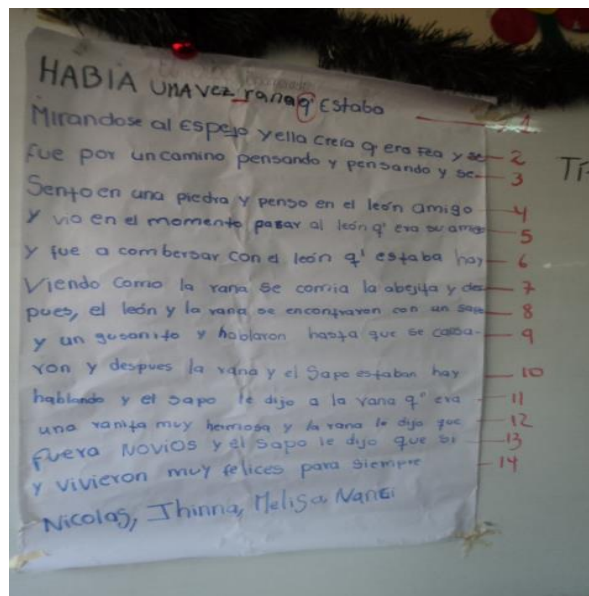 HABIA UNA VEZ rana q' Estaba 1
Mirandose al Espejo y ella creía q' era fea y se 2
fue por un camino pensando y pensando y se 3
Sento en una piedra y penso en el león amigo 4
y vio en el momento pasar al león q' era su amigo 5
y fue a combersar con el león q' estaba hay 6
Viendo como la rana se comia la abejita y des 7
pues, el león y la rana se encontraron con un sapo 8
y un gusanito y hablaron hasta que se cansa- 9
ron y despues la rana y el Sapo estaban hay 10
hablando y el sapo le dijo a la rana q' era 11
una ranita muy hermosa y la rana le dijo que 12
fuera NOVIOS y el sapo le dijo que si 13
y vivieron muy felices para siempre 14
Nicolas, Jhinna, Melisa, Nanci